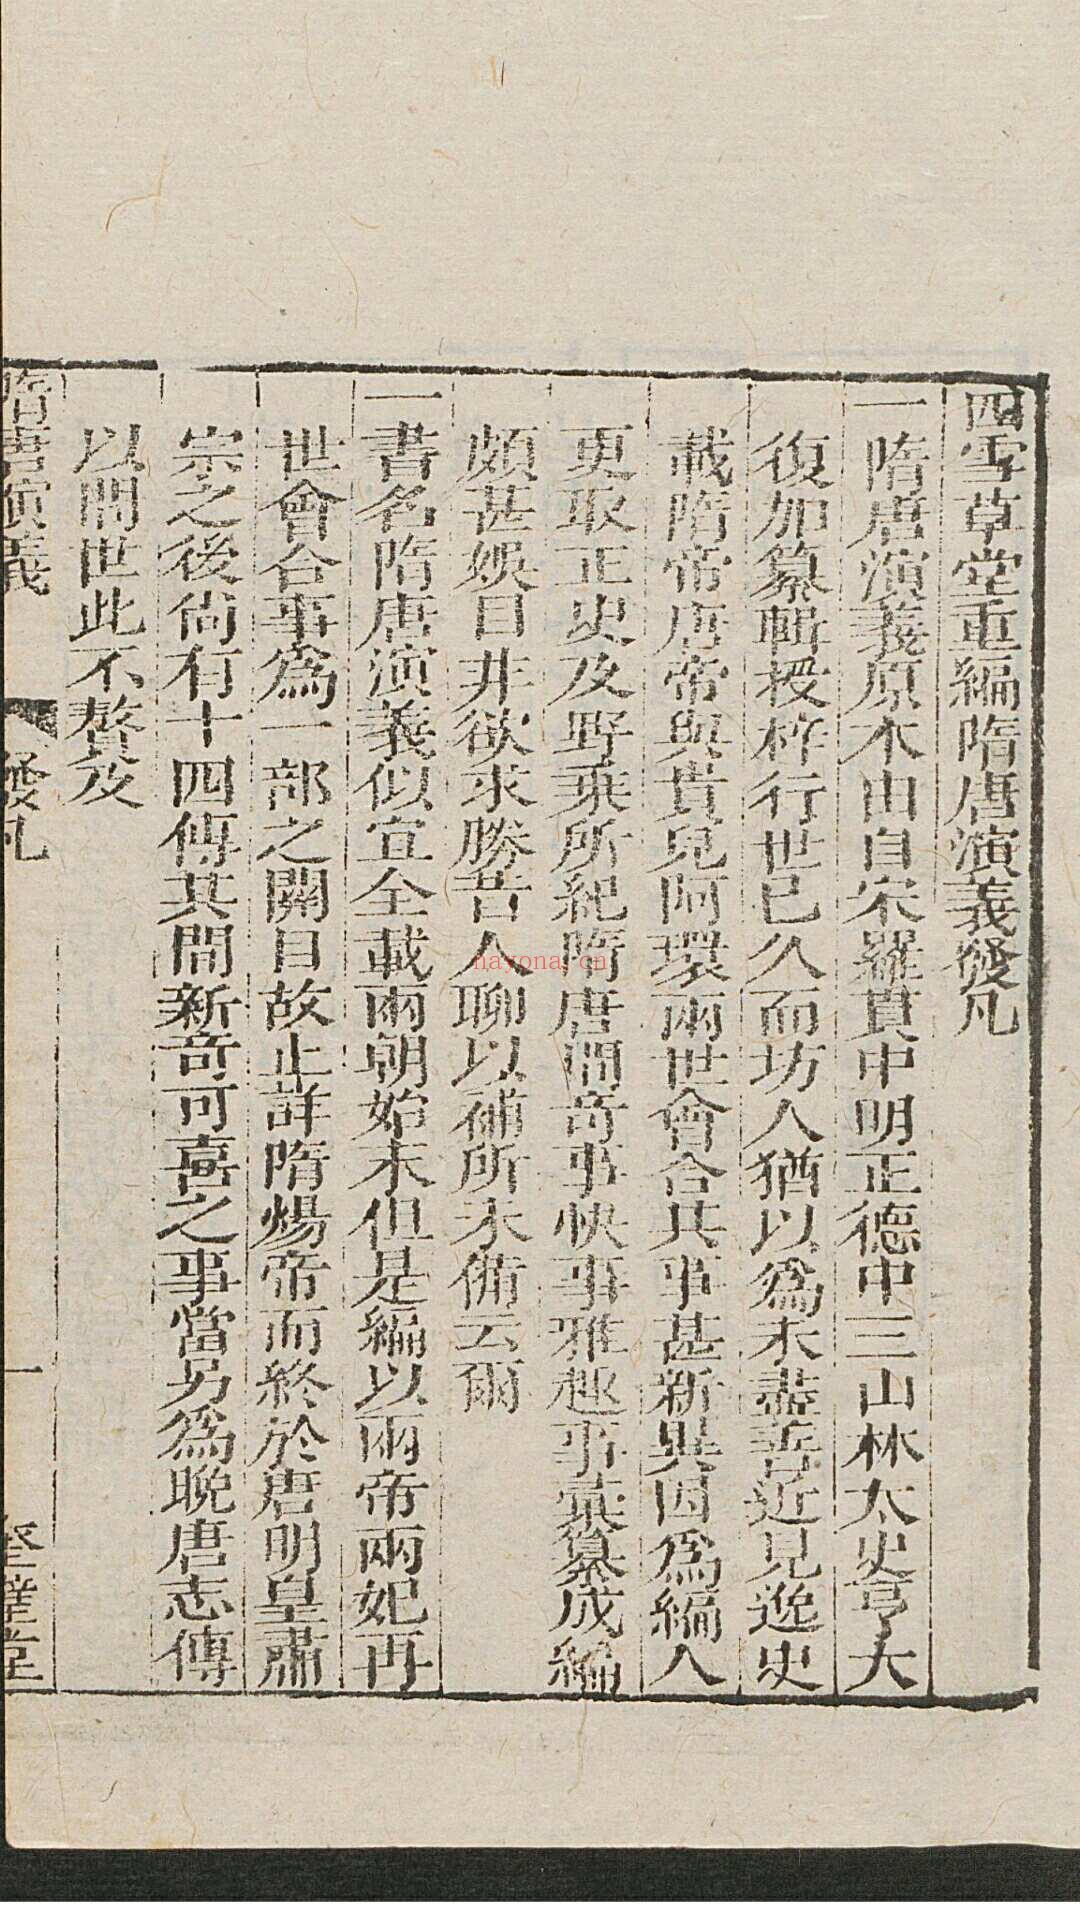 四雪草堂重編隋唐演義發凡
一隋唐演義原本由自宋羅貫中明正德中三山林太史亨大
復加纂輯授梓行世已久而坊人猶以爲未盡善近見逸史
載隋帝唐帝與貴兒阿環兩世會合其事甚新異因爲編入
更取正史及野乘所紀隋唐間奇事快事雅趣事彙纂成編
頗甚娛目非欲求勝昔人聊以補所未備云爾
一書名隋唐演義似宜全載兩朝始末但是編以兩帝兩妃再
世會合事爲一部之關目故止詳隋煬帝而終於唐明皇肅
宗之後尙有十四傳其間新奇可喜之事當另爲晚唐志傳
以問世此不贅及
隋唐演義 發凡 一 堂
nayona.cn